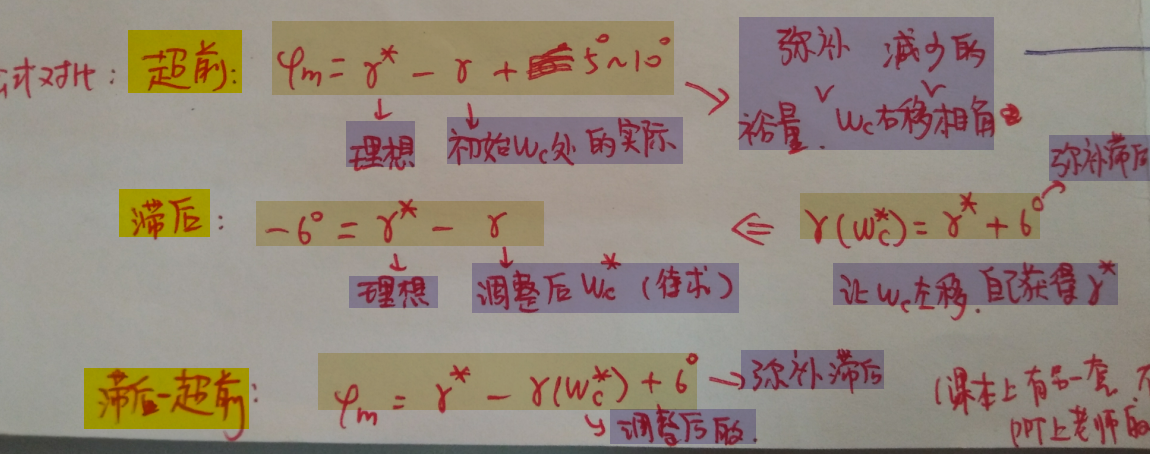 对比：超前： φm = γ* - γ + 5°~10° → 弥补 减少的
理想 初始Wc处的实际 裕量. Wc右移相角
弥补滞后
滞后： -6° = γ* - γ ⇐ γ(Wc*) = γ* + 6°
理想 调整后Wc*（待求） 让Wc左移.自己获得γ*
滞后-超前： φm = γ* - γ(Wc*) + 6° → 弥补滞后
调整后的.
(课本上有另一套.
PPT上老师的